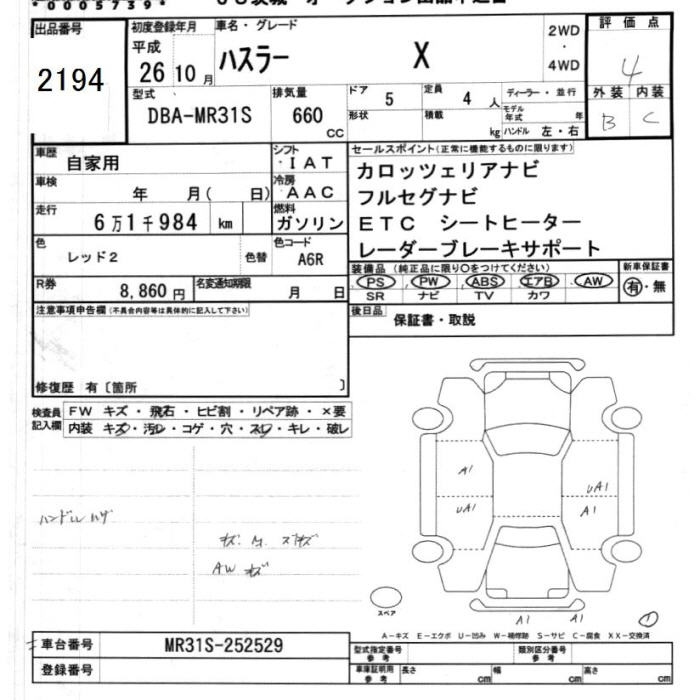 *0005739*
出品番号
2194
初度登録年月
平成
26 10 月
車名・グレード
ハスラー X
2WD
・
4WD
評価点
4
外装 内装
B C
型式
DBA-MR31S
排気量
660
CC
ドア
5
定員
4 人
ディーラー・並行
形状
積載
kg
モデル年式 年
ハンドル 左・右
車歴
自家用
シフト
・IAT
車検
年 月( 日)
冷房
AAC
走行
6万1千984 km
燃料
ガソリン
色
レッド2
色替
色コード
A6R
R券
8,860 円
名変通知期限
月 日
セールスポイント(正常に機能するものに限ります)
カロッツェリアナビ
フルセグナビ
ETC シートヒーター
レーダーブレーキサポート
装備品 (純正品に限り〇をつけてください)
PS PW ABS エアB AW
SR ナビ TV カワ
新車保証書
有・無
後日品
保証書・取説
注意事項申告欄(不具合内容等は具体的に記入して下さい)
修復歴 有〔箇所 〕
検査員
記入欄
FW キズ・飛石・ヒビ割・リペア跡・×要
内装 キズ・汚レ・コゲ・穴・スレ・キレ・破レ
AW キズ
A1
UA1
UA1
A1
A1 A1
1
スペア
A-キズ E-エクボ U-凹み W-補修跡 S-サビ C-腐食 XX-交換済
車台番号
MR31S-252529
登録番号
型式指定番号
参考
類別区分番号
参考
車庫証明用
参考
長さ cm
幅 cm
高さ cm